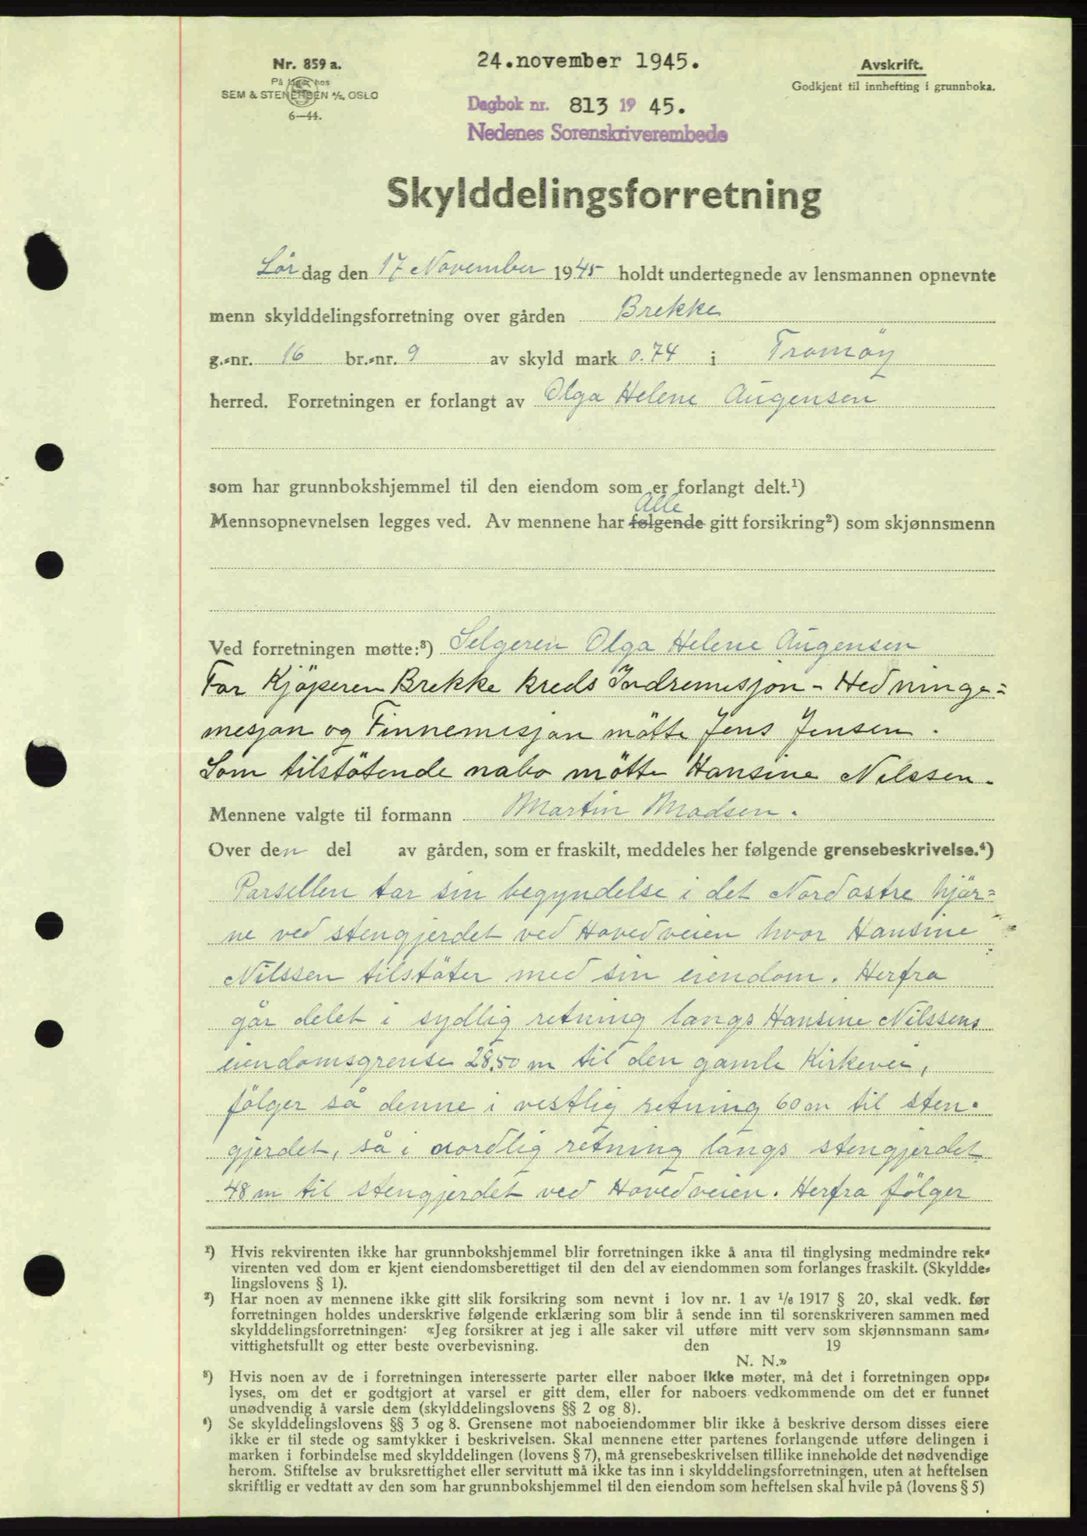 Nr. 859 a.
På lager hos
SEM & STENERSEN A/S, OSLO
6—44.
24.november 1945.
Dagbok nr. 813 19 45.
Nedenes Sorenskriverembede
Avskrift.
Godkjent til innhefting i grunnboka.
Skylddelingsforretning
Lør dag den 17 November 1945 holdt undertegnede av lensmannen opnevnte
menn skylddelingsforretning over gården Brekke
g.-nr. 16 br.-nr. 9 av skyld mark 0.74 i Tromøy
herred. Forretningen er forlangt av Olga Helene Augensen
som har grunnbokshjemmel til den eiendom som er forlangt delt.¹)
Alle
Mennsopnevnelsen legges ved. Av mennene har følgende gitt forsikring²) som skjønnsmenn
Ved forretningen møtte:³) Selgeren Olga Helene Augensen
For Kjöperen Brekke kreds Indremisjon - Hedninge=
mesjon og Finnemisjon mötte Jens Jensen.
Som tilstötende nabo mötte Hansine Nilssen.
Mennene valgte til formann Martin Madsen.
Over den del av gården, som er fraskilt, meddeles her følgende grensebeskrivelse.⁴)
Parsellen tar sin begyndelse i det Nordostre hjör=
ne ved stengjerdet ved Hovedveien hvor Hansine
Nilssen tilstöter med sin eiendom. Herfra
går delet i sydlig retning langs Hansine Nilssens
eiendomsgrense 28,50 m til den gamle Kirkevei,
fölger så denne i vestlig retning 60 m til sten-
gjerdet, så i nordlig retning langs stengjerdet
48 m til stengjerdet ved Hovedveien. Herfra fölger
¹) Hvis rekvirenten ikke har grunnbokshjemmel blir forretningen ikke å anta til tinglysing medmindre rek-
virenten ved dom er kjent eiendomsberettiget til den del av eiendommen som forlanges fraskilt. (Skyldde-
lingslovens § 1).
²) Har noen av mennene ikke gitt slik forsikring som nevnt i lov nr. 1 av 1/6 1917 § 20, skal vedk. før
forretningen holdes underskrive følgende erklæring som blir å sende inn til sorenskriveren sammen med
skylddelingsforretningen: «Jeg forsikrer at jeg i alle saker vil utføre mitt verv som skjønnsmann sam-
vittighetsfullt og etter beste overbevisning. den 19
N. N.»
³) Hvis noen av de i forretningen interesserte parter eller naboer ikke møter, må det i forretningen opp-
lyses, om det er godtgjort at varsel er gitt dem, eller for naboers vedkommende om det er funnet
unødvendig å varsle dem (skylddelingslovens §§ 2 og 8).
⁴) Se skylddelingslovens §§ 3 og 8. Grensene mot naboeiendommer blir ikke å beskrive dersom disses eiere
ikke er til stede og samtykker i beskrivelsen. Skal mennene etter partenes forlangende utføre delingen i
marken i forbindelse med skylddelingen (lovens § 7), må grensebeskrivelsen tillike inneholde det nødvendige
herom. Stiftelse av bruksrettighet eller servitutt må ikke tas inn i skylddelingsforretningen, uten at heftelsen
skriftlig er vedtatt av den som har grunnbokshjemmel til den eiendom som heftelsen skal hvile på (lovens § 5)